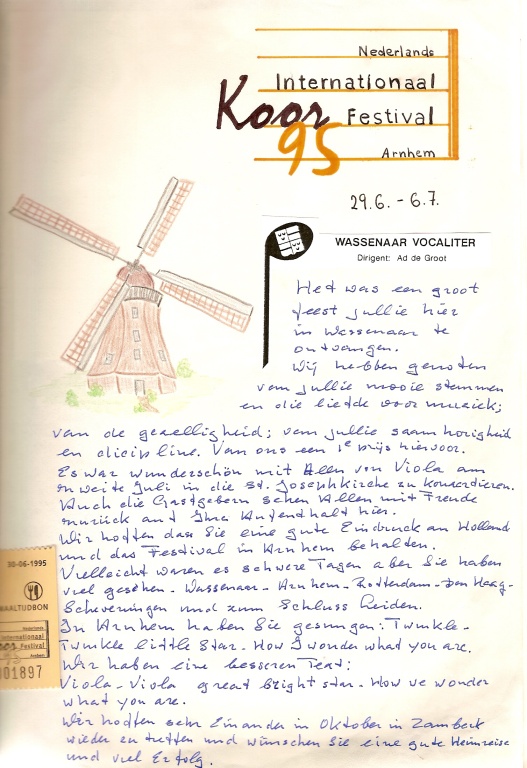 Nederlands
Internationaal
Koor Festival
95
Arnhem
29.6. - 6.7.
WASSENAAR VOCALITER
Dirigent: Ad de Groot
Het was een groot
feest jullie hier
in Wassenaar te
ontvangen.
Wij hebben genoten
van jullie mooie stemmen
en die liefde voor muziek;
van de gezelligheid; van jullie saamhorigheid
en discipline. Van ons een 1e prijs hiervoor.
Es war wunderschön mit Allen von Viola am
zweite Juli in die St. Josephkirche zu konzertieren.
Auch die Gastgebern sehen Allen mit Freude
zurück auf Ihre Aufenthalt hier.
Wir hoffen das Sie eine gute Eindruck an Holland
und das Festival in Arnhem behalten.
Vielleicht waren es schwere Tagen aber Sie haben
viel gesehen - Wassenaar - Arnhem - Rotterdam - Den Haag -
Scheveningen und zum Schluss Leiden.
In Arnhem haben Sie gesungen: Twinkle -
Twinkle little Star - How I wonder what you are.
Wir haben eine besseren Text:
Viola - Viola great bright star - How we wonder
what you are.
Wir hoffen sehr Einander in Oktober in Zamberk
wieder zu treffen und wünschen Sie eine gute Heimreise
und viel Erfolg.
30-06-1995
MAALTIJDBON
Nederlands
Internationaal
Festival
Arnhem
001897